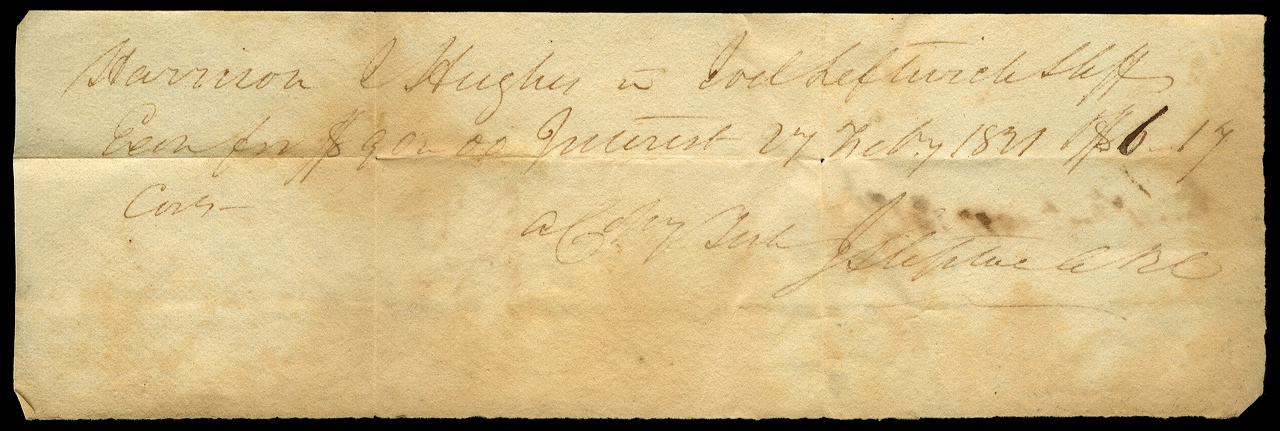 Harrison & Hughes vs Joel Leftwich Shff
Exon for $90.00 Interest 27 Feby 1821 $6.17
Costs
a Copy Teste J Steptoe CBC